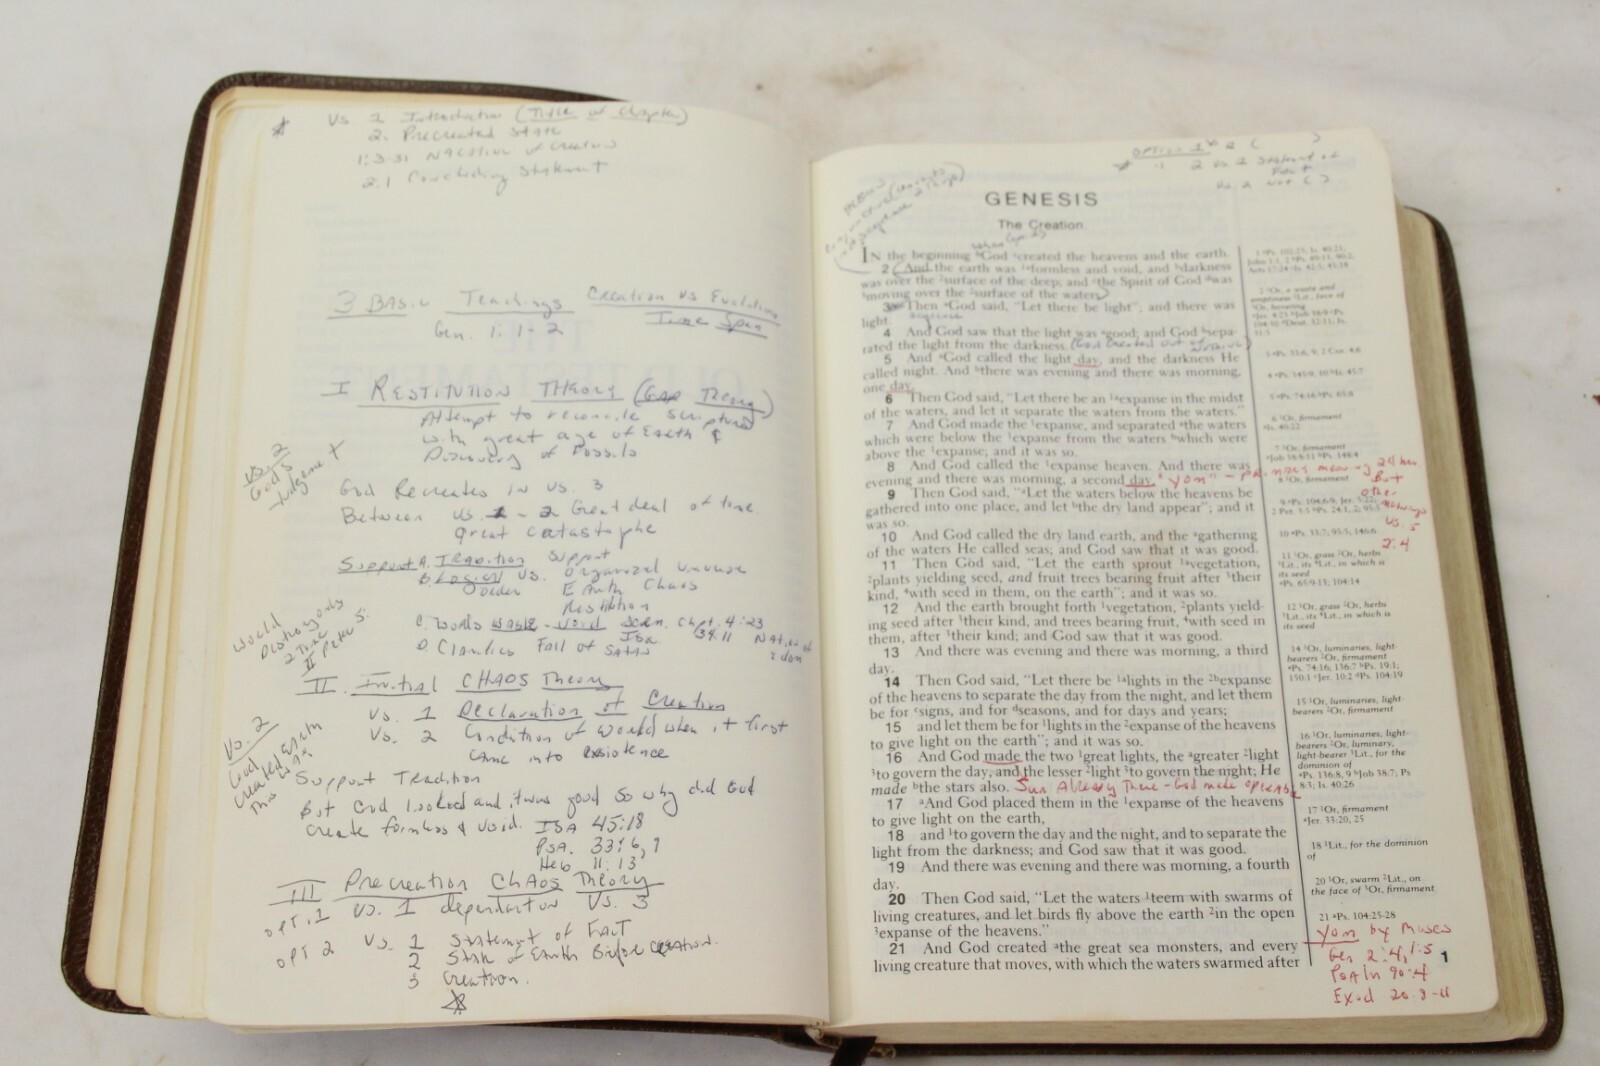 Vs 1 Introduction (Title of Chapter)
2. Precreated State
1:3-31 Narrative of Creation
2:1 Concluding Statement
3 Basic Teachings Creation vs Evolution
Gen. 1:1-2 Time Span
I RESTITUTION THEORY (GAP Theory)
Attempt to reconcile scripture
with great age of Earth &
Discovery of Fossils
vs. 2
God's
Judgement
God Recreates in vs. 3
Between vs. 1-2 Great deal of time
great catastrophe
Support A. Tradition Support
B. Logical vs. Organized Universe
order Earth Chaos
Restitution
C. Words waste - void Jerem. Chpt. 4:23
Isa 34:11
D. Claims Fall of Satan
World
Destroyed only
2 Times
II Peter 3:
II. Initial CHAOS Theory
vs. 1 Declaration of Creation
vs. 2 Condition of world when it first
came into existence
Vs. 2
God
created Earth
this way
Support Tradition
But God looked and it was good so why did God
create formless & void. ISA 45:18
PSA. 33:6, 9
Heb 11:3
III Precreation CHAOS Theory
OPT. 1 vs. 1 dependant on vs. 3
OPT 2 vs. 1 Statement of FACT
2 State of Earth Before creation.
3 Creation.
OPTION 1 & 2 (      )
2 vs. 1 Statement of
Fact
vs. 2 not ( )
GENESIS
The Creation
IN the beginning ᵇGod ᶜcreated the heavens and the earth.
2 And the earth was ¹ᵃformless and void, and ᵇdarkness
was over the ²surface of the deep; and ᶜthe Spirit of God ᵈwas
³moving over the ²surface of the waters.
3 Then ᵃGod said, "Let there be light"; and there was
light.
4 And God saw that the light was ᵃgood; and God ᵇsepa-
rated the light from the darkness. (God Created out of nothing)
5 And ᵃGod called the light day, and the darkness He
called night. And ᵇthere was evening and there was morning,
one day.
6 Then God said, "Let there be an ¹ᵃexpanse in the midst
of the waters, and let it separate the waters from the waters."
7 And God made the ¹expanse, and separated ᵃthe waters
which were below the ¹expanse from the waters ᵇwhich were
above the ¹expanse; and it was so.
8 And God called the ¹expanse heaven. And there was
evening and there was morning, a second day. "yom" - primary meaning 24 hrs
But
other
meanings
vs. 5
2:4
9 Then God said, "ᵃLet the waters below the heavens be
gathered into one place, and let ᵇthe dry land appear"; and it
was so.
10 And God called the dry land earth, and the ᵃgathering
of the waters He called seas; and God saw that it was good.
11 Then God said, "Let the earth sprout ¹ᵃvegetation,
²plants yielding seed, and fruit trees bearing fruit after ³their
kind, ⁴with seed in them, on the earth"; and it was so.
12 And the earth brought forth ¹vegetation, ²plants yield-
ing seed after ³their kind, and trees bearing fruit, ⁴with seed in
them, after ³their kind; and God saw that it was good.
13 And there was evening and there was morning, a third
day.
14 Then God said, "Let there be ¹ᵃlights in the ²ᵇexpanse
of the heavens to separate the day from the night, and let them
be for ᶜsigns, and for ᵈseasons, and for days and years;
15 and let them be for ¹lights in the ²expanse of the heavens
to give light on the earth"; and it was so.
16 And God made the two ¹great lights, the ᵃgreater ²light
³to govern the day, and the lesser ²light ³to govern the night; He
made ᵇthe stars also. Sun Already There - God made operable
17 ᵃAnd God placed them in the ¹expanse of the heavens
to give light on the earth,
18 and ¹to govern the day and the night, and to separate the
light from the darkness; and God saw that it was good.
19 And there was evening and there was morning, a fourth
day.
20 Then God said, "Let the waters ¹teem with swarms of
living creatures, and let birds fly above the earth ²in the open
³expanse of the heavens."
21 And God created ᵃthe great sea monsters, and every
living creature that moves, with which the waters swarmed after
6 ¹Or, firmament
ᵃIs. 40:22
7 ¹Or, firmament
8 ¹Or, firmament
10 ᵃPs. 33:7; 95:5; 146:6
11 ¹Or, grass ²Or, herbs
³Lit., its ⁴Lit., in which is
its seed
ᵃPs. 65:9-13; 104:14
12 ¹Or, grass ²Or, herbs
³Lit., its ⁴Lit., in which is
its seed
14 ¹Or, luminaries, light-
bearers ²Or, firmament
ᵃPs. 74:16; 136:7 ᵇPs. 19:1;
150:1 ᶜJer. 10:2 ᵈPs. 104:19
15 ¹Or, luminaries, light-
bearers ²Or, firmament
16 ¹Or, luminaries, light-
bearers ²Or, luminary,
light-bearer ³Lit., for the
dominion of
ᵃPs. 136:8, 9 ᵇJob 38:7; Ps
8:3; Is. 40:26
17 ¹Or, firmament
ᵃJer. 33:20, 25
18 ¹Lit., for the dominion
of
20 ¹Or, swarm ²Lit., on
the face of ³Or, firmament
21 ᵃPs. 104:25-28
yom by Moses
Gen 2:4, 1:5
Psalm 90:4
Exod 20:9-11
1